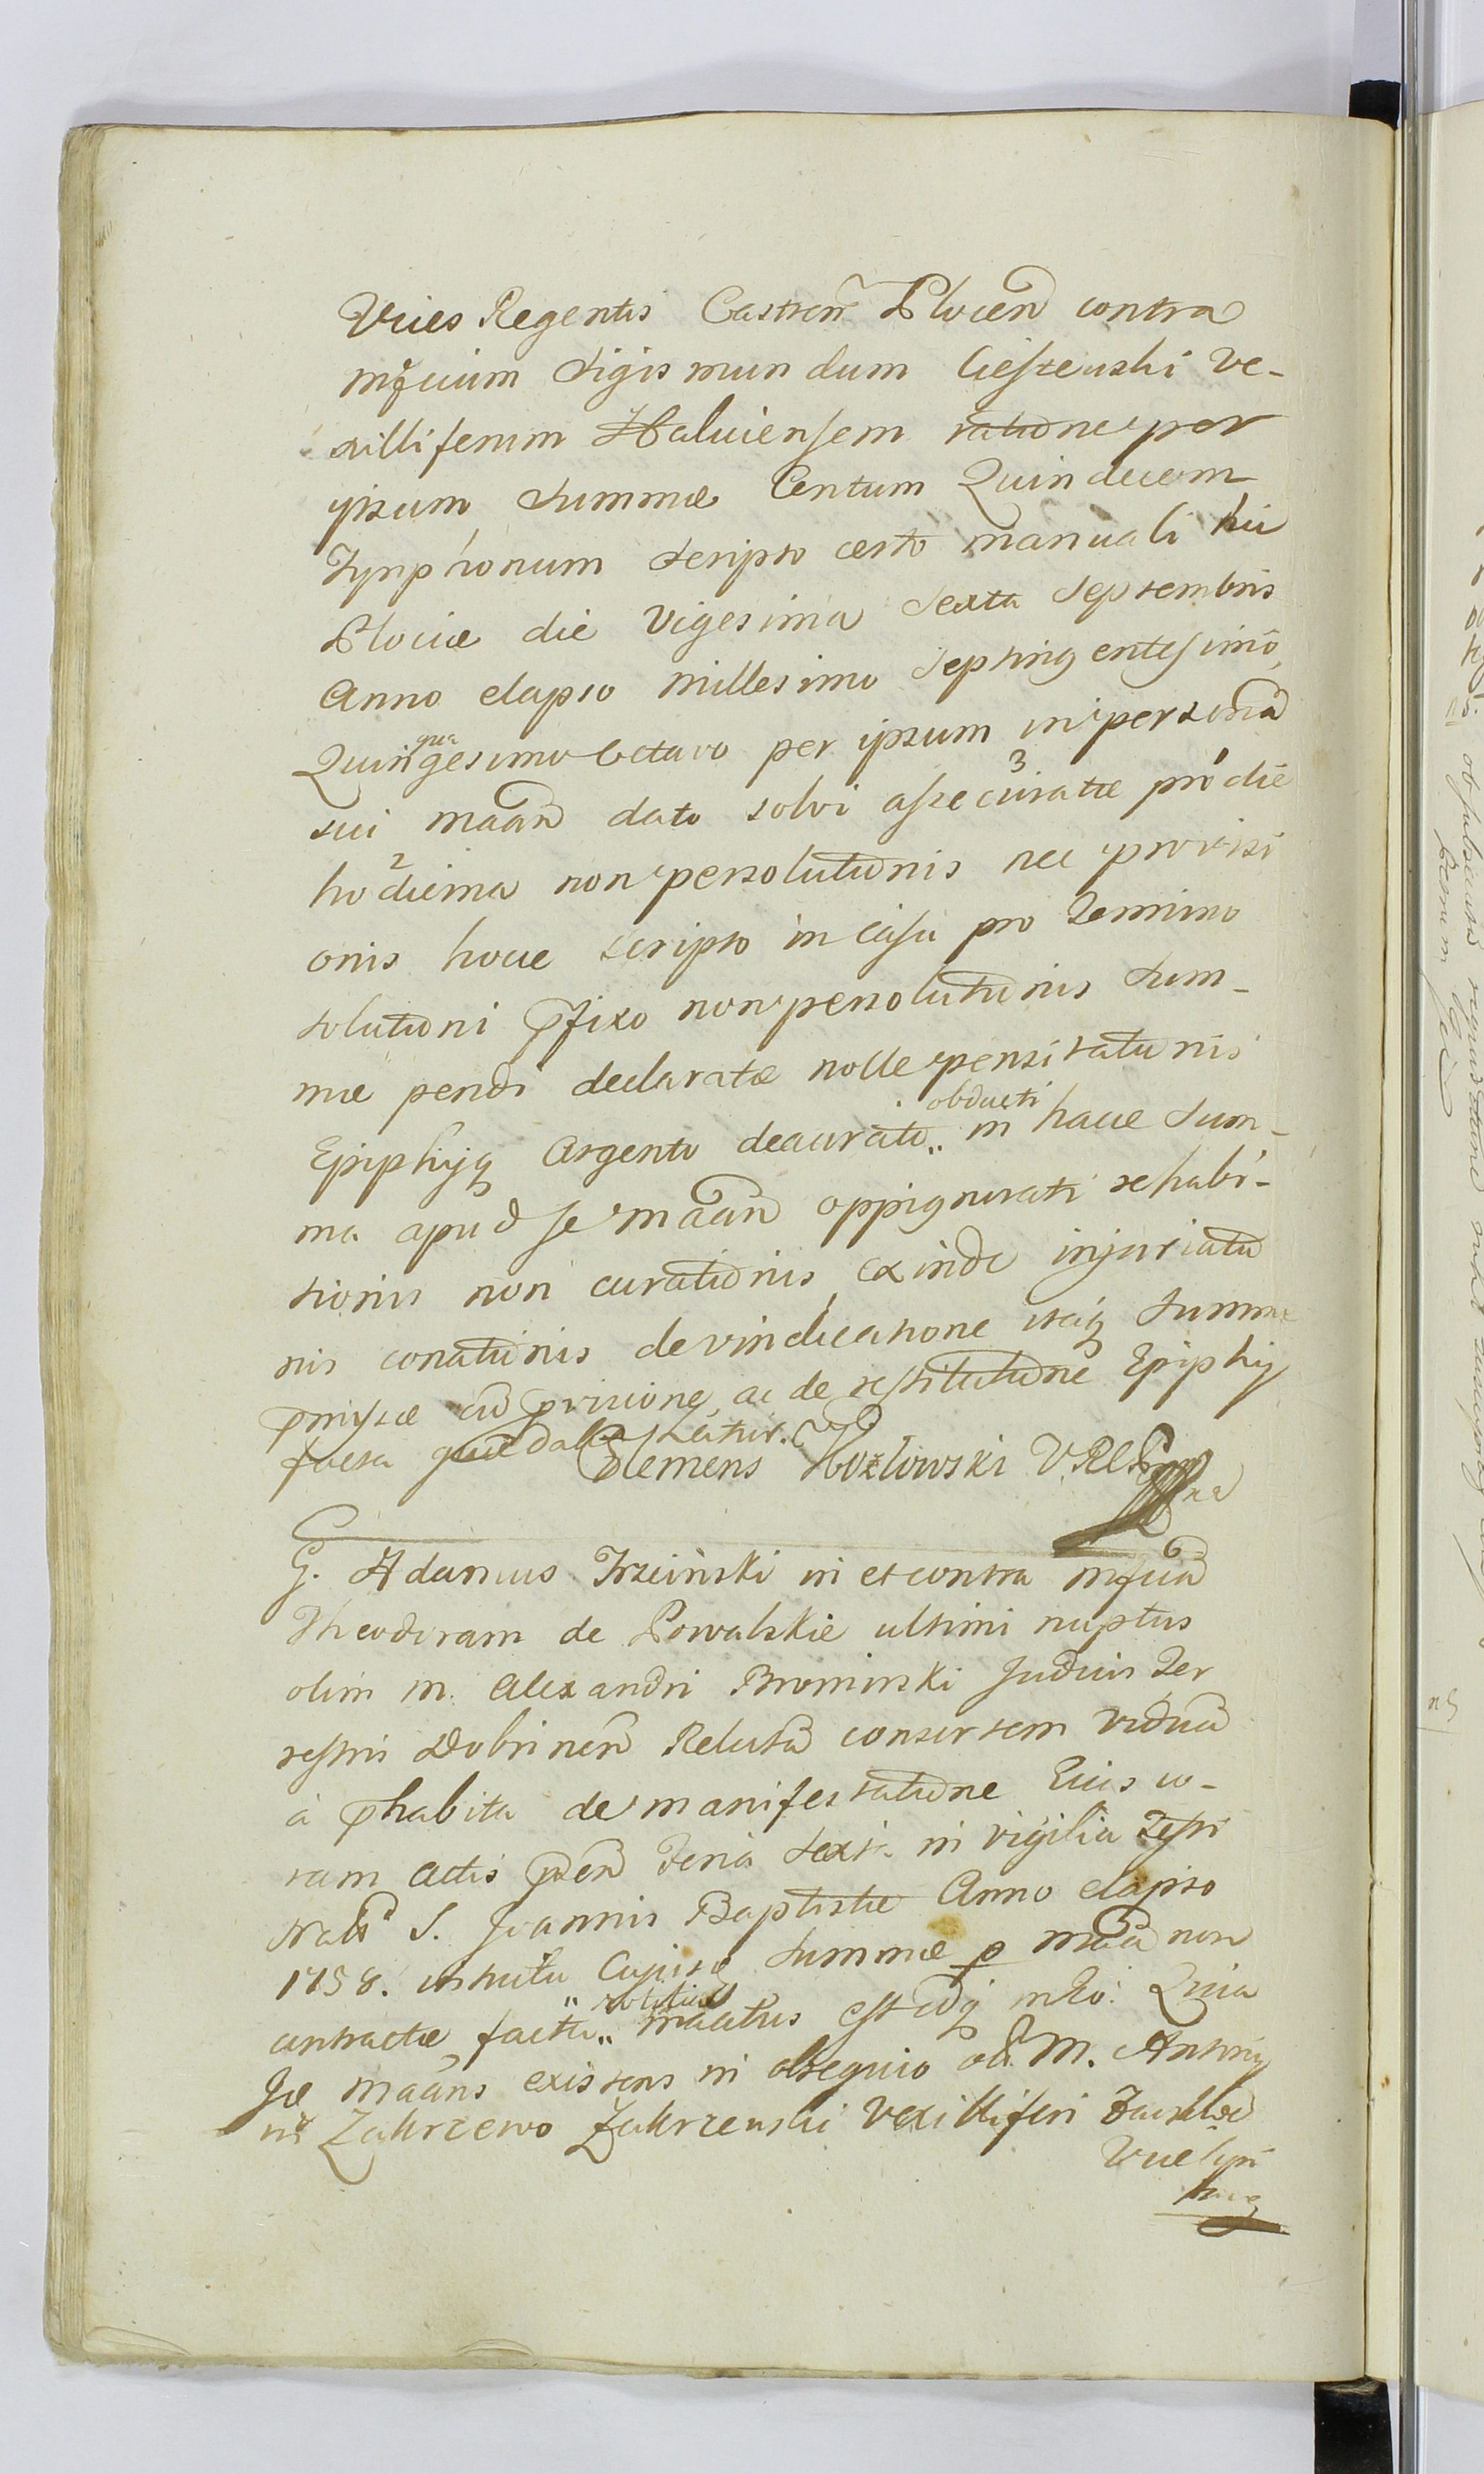 Vices Regentis Castren Plocen contra
mfcum Sigismundum Cieszewski Ve-
xilliferum Haliciensem ratione per
ipsum Summæ Centum Quindecem
Tynphonum Scripto certo manuali hic
Plociæ die Vigesima Sexta Septembris
Anno elapso Millesimo Septingentesimo
Quinquagesimo Octavo per ipsum in personã
sui maan dato solvi assecuratæ pro die
hodierna non persolutionis nec provisi
onis hocce scripto in casu pro Termino
solutioni pfixo non persolutionis Sum-
mæ pendi declaratæ nolle pensitationis
Epiphijq Argento deaurato obducti in hacce Sum-
ma apud se maan oppignorati rehabi-
tionis non curationis, exinde injuriatio
nis conationis de vindicatione itaq Summæ
pmissæ cũ pvisione, ac de restitutione Epiphij
facta
Clemens Kozłowski V. R. C. P. mpp
G. Adamus Trzcinski in et contra mfcã
Theodoram de Kowalskie ultimi nuptus
olim M. Alexandri Brominski Judicis Ter
restris Dobrinen Relictã consortem viduã
a phabita de manifestatione Eius co-
ram Actis psen Feria Sexta in vigilia Festi
Natis S. Joannis Baptistæ Anno elapso
1758. instituta Cujusd Summæ p maan non
contractæ facta maatus est idq ineo: Quia
Se maans existens in obsequio olĩ M. Antonij
de Zakrzewo Zakrzewski Vexilliferi